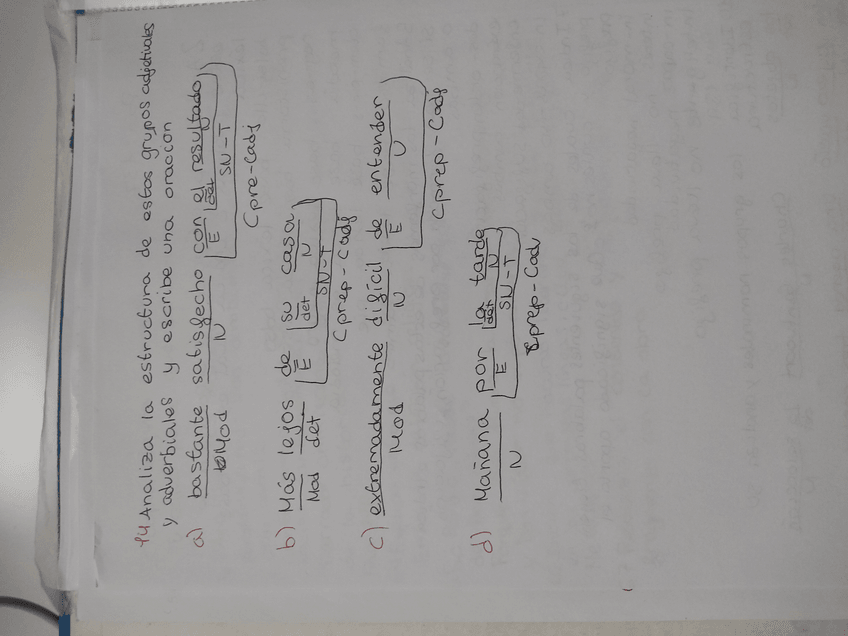 14 Analiza la estructura de estos grupos adjetivales
y adverbiales y escribe una oracion
a) bastante satisfecho con el resultado
Mod N E det N
SN-T
Cpre-Cadj
b) Más lejos de su casa
Mod det E det N
SN-T
Cprep-Cadj
c) extremadamente difícil de entender
Mod N E V
Cprep-Cadj
d) Mañana por la tarde
N E det N
SN-T
Cprep-Cadv